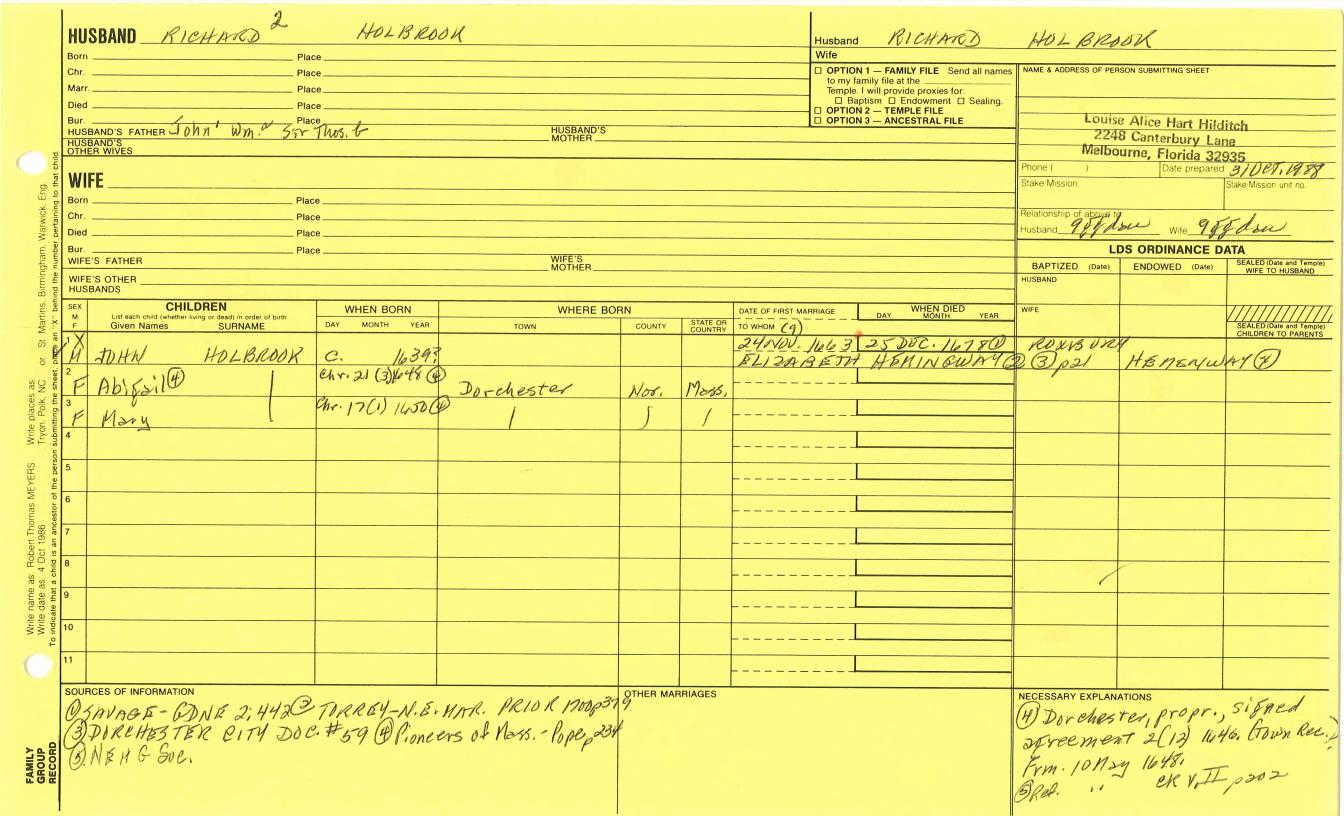 HUSBAND RICHARD 2 HOLBROOK
Born Place
Chr. Place
Marr. Place
Died Place
Bur. Place
HUSBAND'S FATHER John' Wm. Sir Thos. HUSBAND'S MOTHER
HUSBAND'S OTHER WIVES
Husband RICHARD HOLBROOK
Wife
☐ OPTION 1 — FAMILY FILE Send all names
to my family file at the
Temple. I will provide proxies for:
☐ Baptism ☐ Endowment ☐ Sealing.
☐ OPTION 2 — TEMPLE FILE
☐ OPTION 3 — ANCESTRAL FILE
NAME & ADDRESS OF PERSON SUBMITTING SHEET
Louise Alice Hart Hilditch
2248 Canterbury Lane
Melbourne, Florida 32935
Phone ( ) Date prepared 31 OCT. 1988
Stake/Mission Stake/Mission unit no.
Relationship of above to
Husband Wife
WIFE
Born Place
Chr. Place
Died Place
Bur. Place
WIFE'S FATHER WIFE'S MOTHER
WIFE'S OTHER HUSBANDS
LDS ORDINANCE DATA
BAPTIZED (Date) ENDOWED (Date) SEALED (Date and Temple) WIFE TO HUSBAND
HUSBAND
WIFE
SEALED (Date and Temple) CHILDREN TO PARENTS
SEX M F
CHILDREN
List each child (whether living or dead) in order of birth
Given Names SURNAME
WHEN BORN
DAY MONTH YEAR
WHERE BORN
TOWN COUNTY STATE OR COUNTRY
DATE OF FIRST MARRIAGE
TO WHOM (9)
WHEN DIED
DAY MONTH YEAR
1 X 24 NOV. 1663 25 DEC. 1678 ① ROXBURY
M JOHN HOLBROOK C. 1639? ELIZABETH HEMINGWAY ② ③ p21 HEMENWAY
2 F Abigail ④ Chr. 21 (3) 1648 ④ Dorchester Nor. Mass.
3 F Mary Chr. 17 (1) 1650 ④
4
5
6
7
8
9
10
11
SOURCES OF INFORMATION
① SAVAGE - GDNE 2:442 ② TORREY - N.E. MAR. PRIOR 1700 p379
③ DORCHESTER CITY DOC. #59 ④ Pioneers of Mass. - Pope p234
⑤ N E H G Soc.
OTHER MARRIAGES
NECESSARY EXPLANATIONS
④ Dorchester, propr., signed
agreement 2 (12) 1646. (Town Rec.)
Frm. 10 May 1648.
⑤ " CR V. II p202
Write name as: Robert Thomas MEYERS Write places as: Tryon, Polk, NC or St. Martins, Birmingham, Warwick, Eng.
Write date as: 4 Oct 1986
To indicate that a child is an ancestor of the person submitting the sheet, place an "X" behind the number pertaining to that child.
FAMILY
GROUP
RECORD